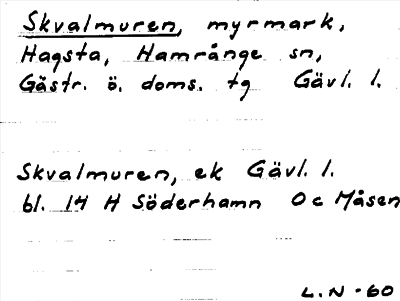 Skvalmuren, myrmark,
Hagsta, Hamrånge sn,
Gästr. ö. doms. tg Gävl. l.
Skvalmuren, ek Gävl. l.
bl. 14 H Söderhamn Oc Måsen
L.N-60